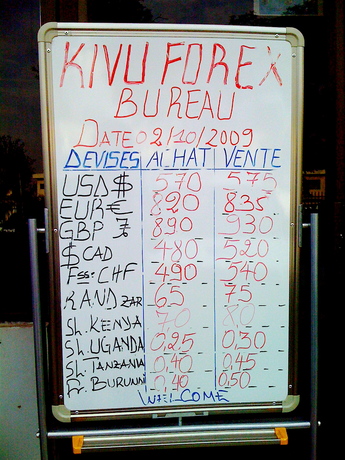 KIVU FOREX
BUREAU
DATE 02/10/2009
DEVISES ACHAT VENTE
USD $ 570 575
EUR € 820 835
GBP £ 890 930
$ CAD 480 520
Fss: CHF 490 540
RAND ZAR 65 75
Sh. KENYA 7.0 8.0
Sh. UGANDA 0.25 0.30
Sh. TANZANIA 0.40 0.45
Fr. BURUNDI 0.40 0.50
WELCOME